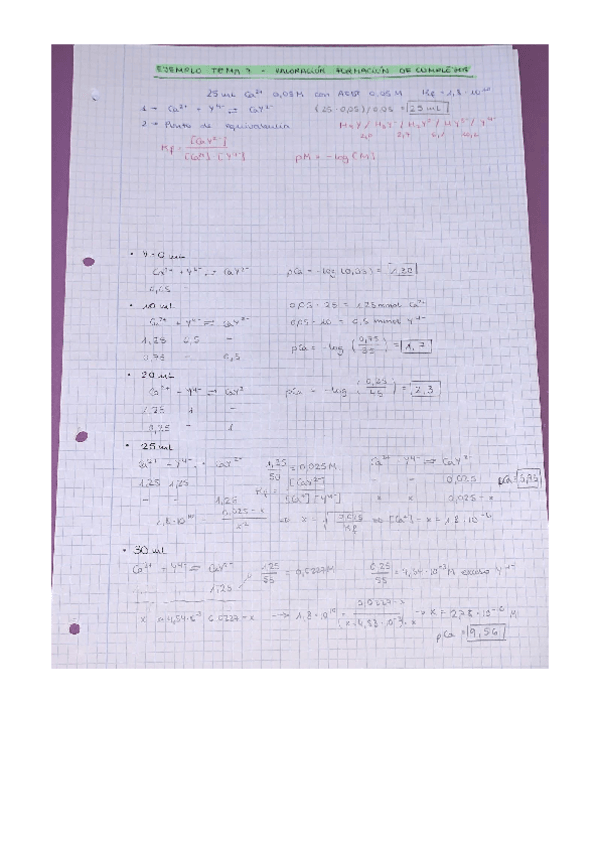 EJEMPLO TEMA 7 - VALORACIÓN FORMACIÓN DE COMPLEJOS
25 mL Ca²⁺ 0,05 M con AEDT 0,05 M Kf = 1,8·10¹⁰
1 → Ca²⁺ + Y⁴⁻ ⇌ CaY²⁻ (25·0,05)/0,05 = 25 mL
2 → Punto de equivalencia H₄Y / H₃Y⁻ / H₂Y²⁻ / HY³⁻ / Y⁴⁻
Kf = [CaY²⁻] / [Ca²⁺]·[Y⁴⁻] pM = -log [M]
Ca²⁺ + Y⁴⁻ ⇌ CaY²⁻ pCa = -log (0,05) = 1,30
0,05 -
• 10 mL 0,05 · 25 = 1,25 mmol Ca²⁺
Ca²⁺ + Y⁴⁻ ⇌ CaY²⁻ 0,05 · 10 = 0,5 mmol Y⁴⁻
1,25 0,5 -
0,75 - 0,5 pCa = -log (0,75/35) = 1,7
• 20 mL
Ca²⁺ + Y⁴⁻ ⇌ CaY²⁻ pCa = -log (0,25/45) = 2,3
1,25 1 -
0,25 - 1
• 25 mL
Ca²⁺ + Y⁴⁻ ⇌ CaY²⁻ 1,25/50 = 0,025 M Ca²⁺ Y⁴⁻ ⇌ CaY²⁻
1,25 1,25 Kf = [CaY²⁻] / [Ca²⁺]·[Y⁴⁻] - - 0,025
- - 1,25 x x 0,025 - x
1,8·10¹⁰ = 0,025 - x / x² x = √ 0,025 / Kf [Ca²⁺] = x =
• 30 mL
Ca²⁺ + Y⁴⁻ ⇌ CaY²⁻ 1,25/55 = 0,0227 M 0,25/55 = 4,54·10⁻³ M exceso Y⁴⁻
1,25
x 0,0227 - x → 1,8·10¹⁰ = → x =
pCa = 9,56